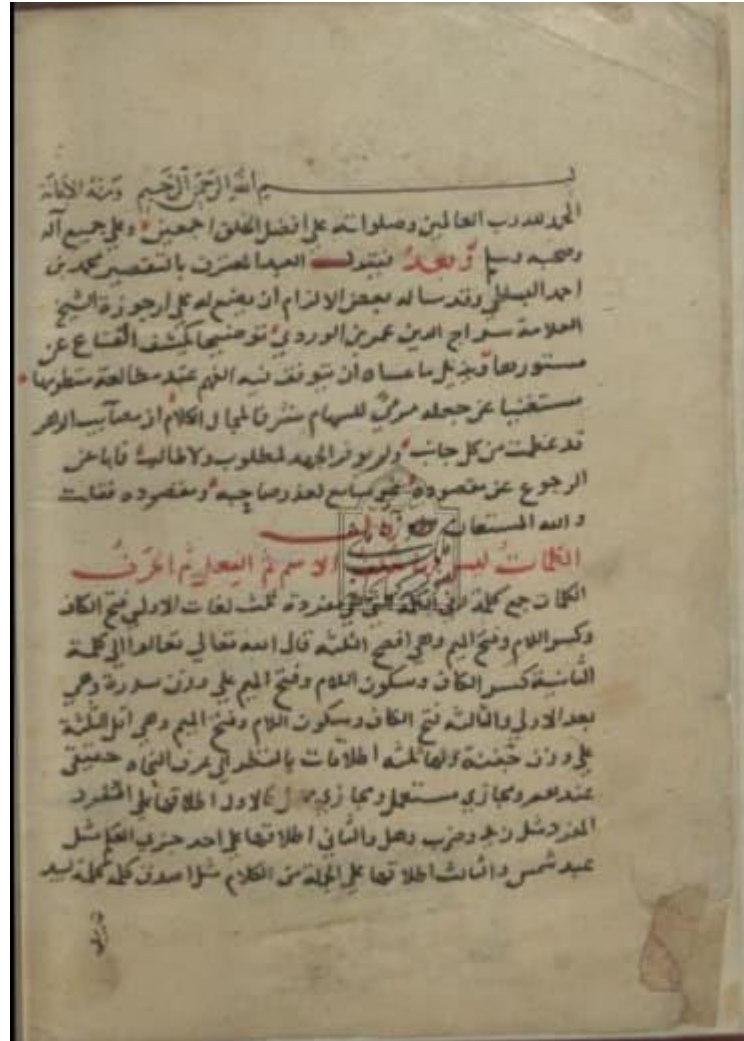 بسم الله الرحمن الرحيم وبه الإعانة
الحمد لله رب العالمين وصلواته على افضل الخلق اجمعين وعلى جميع آله
وصحبه وسلم وبعد فيقول العبد المعترف بالتقصير محمد بن
احمد وقد ساله بعض الالزام ان يضع له على ارجوزة الشيخ
العلامة سراج الدين عمر بن الوردي توضيحا يكشف القناع عن
مستورها ويذيل ما عساه ان يتوقف فيه الفهم عند مطالعة سطورها
مستغنيا عن جعله للسهام لمجال الكلام اذ مصايب الدهر
قد عظمت من كل جانب ولم يوفر الجهد لمطلوب ولا طالب فابا عن
الرجوع عن مقصوده غير سامع لعذر صاحبه ومقصوده فقلت
والله المستعان
الكلمات ليس الاسم ثم الفعل ثم الحرف
الكلمات جمع كلمة وفي الكلمة التي هي مفردة ثلث لغات الاولى فتح الكاف
وكسر اللام وفتح الميم وهي افصح الثلثه قال الله تعالى تعالوا الى كلمة
الثانية كسر الكاف وسكون اللام وفتح الميم على وزن سدرة وهي
بعد الاولى والثالثه فتح الكاف وسكون اللام وفتح الميم وهي اقل الثلثة
على وزن جفنة ولها ثلثه اطلاقات بالنظر الى عرف النحاه حقيقي
عندهم ومجازي مستعمل ومجازي فالاول اطلاقها على المنفرد
المفرد مثل زيد وضرب وهل والثاني اطلاقها على احد جزءي العلم مثل
عبد شمس والثالث اطلاقها على الجملة من الكلام مثل اصدق كلمة كلمة لبيد